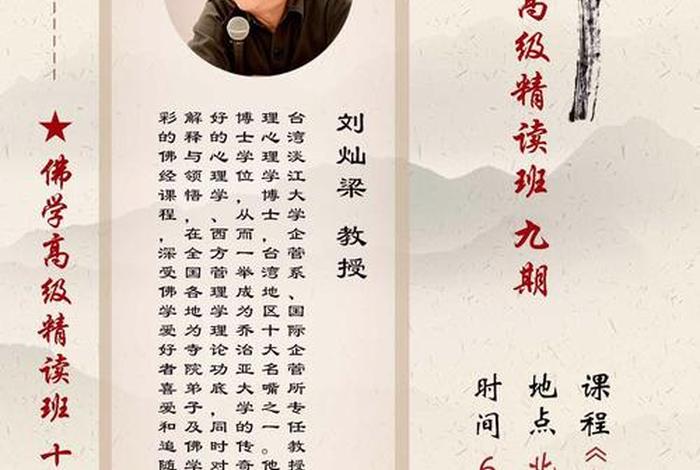 课程《
地点
时间 6
高级精读班 九期
刘灿梁 教授
台湾淡江大学企管系、国际企管所专任教授
理心理学博士，台湾地区十大名嘴之一。他
博士学位，从而一举成为乔治亚大学的传奇
好的心理学、西方管理学理论功底，同时对
解释与领悟，在全国各地为寺院弟子及佛学
彩的佛经课程，深受佛学爱好者喜爱和追随
★佛学高级精读班 十